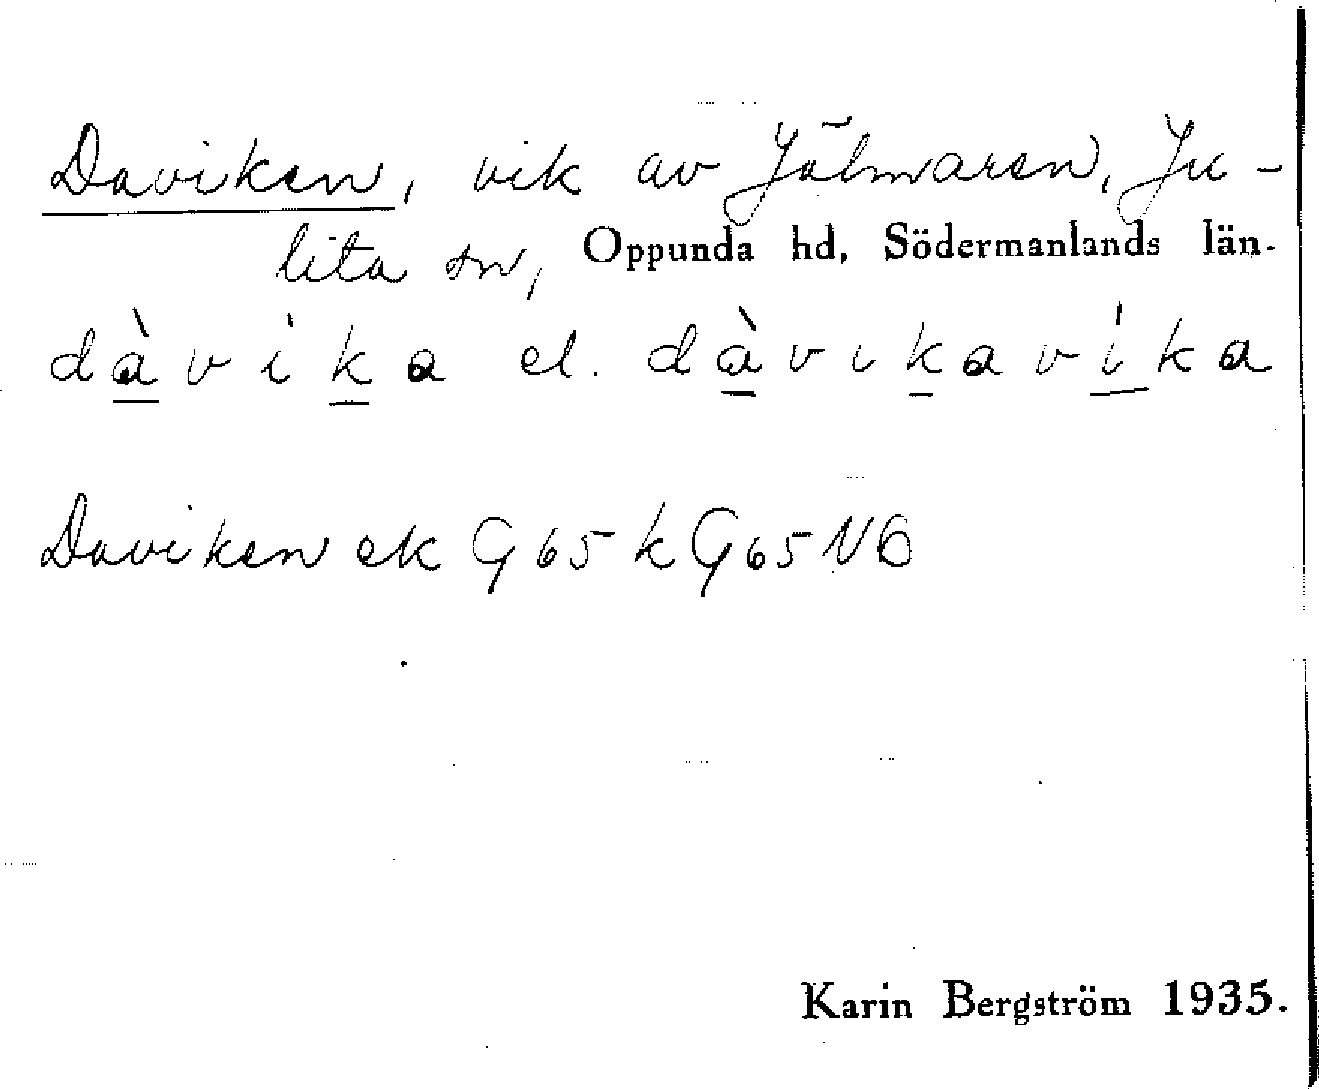 Daviken, vik av Hjälmaren, Ju-
lita sn, Oppunda hd, Södermanlands län.
dàvika el. dàvikavika
Daviken ek G65 k G65 NO
Karin Bergström 1935.